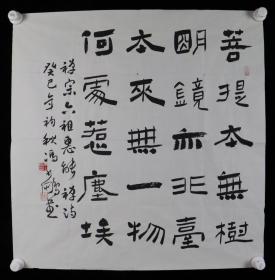 菩提本無樹
明鏡亦非臺
本來無一物
何處惹塵埃
禅宗六祖惠能禅诗
癸巳年初秋馮